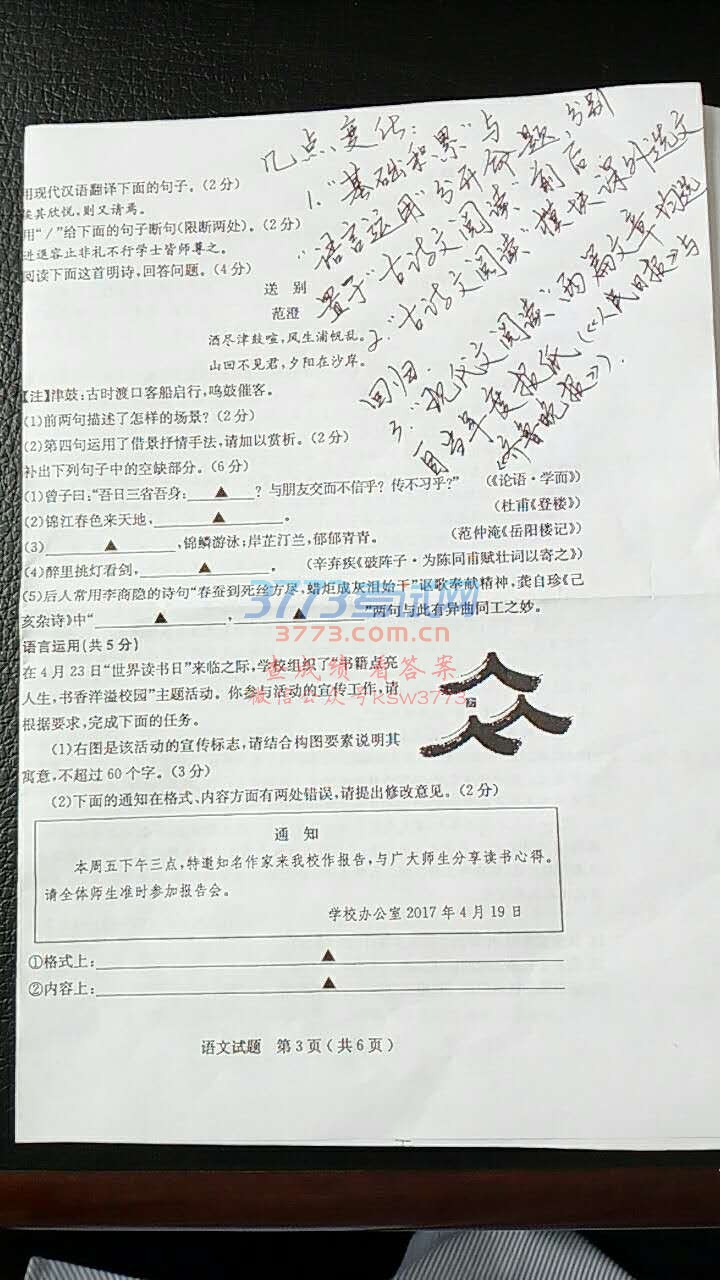 几点变化：
1. “基础积累”与
“语言运用”分开命题，分别
置于“古诗文阅读”前后
2. “古诗文阅读”模块课外选文
回归.
3. “现代文阅读”两篇文章均选
自当年度报纸(《人民日报》与
《齐鲁晚报》).
用现代汉语翻译下面的句子。(2分)
俟其欣悦,则又请焉。
用“/”给下面的句子断句(限断两处)。(2分)
进退容止非礼不行学士皆师尊之。
阅读下面这首明诗,回答问题。(4分)
送 别
范澄
酒尽津鼓喧,风生浦帆乱。
山回不见君,夕阳在沙岸。
【注】津鼓:古时渡口客船启行,鸣鼓催客。
(1)前两句描述了怎样的场景?(2分)
(2)第四句运用了借景抒情手法,请加以赏析。(2分)
补出下列句子中的空缺部分。(6分)
(1)曾子曰:“吾日三省吾身:▲? 与朋友交而不信乎? 传不习乎?” (《论语·学而》)
(2)锦江春色来天地,▲。 (杜甫《登楼》)
(3)▲,锦鳞游泳;岸芷汀兰,郁郁青青。 (范仲淹《岳阳楼记》)
(4)醉里挑灯看剑,▲。 (辛弃疾《破阵子·为陈同甫赋壮词以寄之》)
(5)后人常用李商隐的诗句“春蚕到死丝方尽,蜡炬成灰泪始干”讴歌奉献精神,龚自珍《己
亥杂诗》中“▲,▲”两句与此有异曲同工之妙。
3773考试网
3773.com.cn
查成绩 看答案
微信公众号KSW3773
语言运用(共5分)
在4月23日“世界读书日”来临之际,学校组织了“书籍点亮
人生,书香洋溢校园”主题活动。你参与活动的宣传工作,请
根据要求,完成下面的任务。
(1)右图是该活动的宣传标志,请结合构图要素说明其
寓意,不超过60个字。(3分)
(2)下面的通知在格式、内容方面有两处错误,请提出修改意见。(2分)
通 知
本周五下午三点,特邀知名作家来我校作报告,与广大师生分享读书心得。
请全体师生准时参加报告会。
学校办公室2017年4月19日
①格式上:▲
②内容上:▲
语文试题 第3页(共6页)